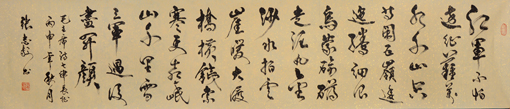 紅軍不怕
遠征難萬
水千山只
等閒五嶺逶
迤騰細浪
烏蒙磅礴
走泥丸金
沙水拍雲
崖暖大渡
橋橫鐵索
寒更喜岷
山千里雪
三軍過後
盡開顏
毛主席詩七律長征
丙申年秋月
書